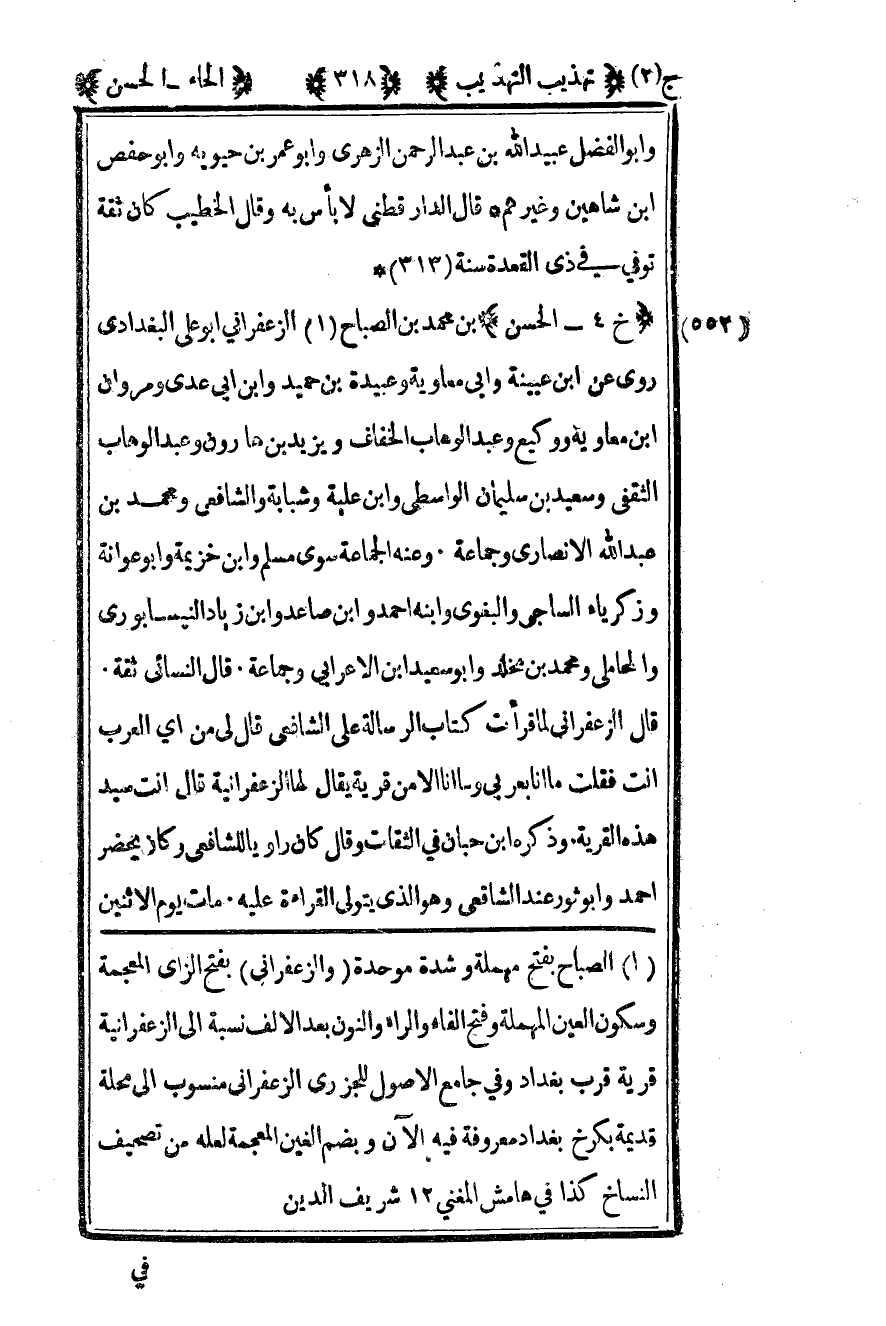 ج(٢) ﴿ تهذيب التهذيب ﴾ ﴿ ٣١٨ ﴾ ﴿ الحاء ـ الحسن ﴾
وابوالفضل عبيدالله بن عبدالرحمن الزهرى وابوعمر بن حيويه وابوحفص
ابن شاهين وغيرهم٥ قال الدار قطنى لابأس به وقال الخطيب كان ثقة
توفي في ذى القعدة سنة (٣١٣)*
(٥٥٢) ﴿ خ ٤ ـ الحسن ﴾ بن محمد بن الصباح (١) الزعفراني ابوعلى البغدادى
روى عن ابن عيينة وابى معاوية وعبيدة بن حميد وابن ابى عدى ومروان
ابن معاوية ووكيع وعبدالوهاب الخفاف ويزيد بن هارون وعبدالوهاب
الثقفى وسعيد بن سليمان الواسطى وابن علية وشبابة والشافعى ومحمد بن
عبدالله الانصارى وجماعة ٠ وعنه الجماعة سوى مسلم وابن خزيمة وابوعوانة
وزكرياء الساجى والبغوى وابنه احمد وابن صاعد وابن زياد النيسابورى
والمحاملى ومحمد بن مخلد وابوسعيد ابن الاعرابي وجماعة ٠ قال النسائى ثقة ٠
قال الزعفرانى لما قرأت كتاب الرسالة على الشافعى قال لى من اي العرب
انت فقلت ما انا بعربى وما انا الا من قرية يقال لها الزعفرانية قال انت سيد
هذه القرية ٠ وذكره ابن حبان في الثقات وقال كان راويا للشافعى وكان يحضر
احمد وابوثور عند الشافعى وهو الذى يتولى القراءة عليه ٠ مات يوم الاثنين
(١) الصباح بفتح مهملة وشدة موحدة (والزعفراني) بفتح الزاى المعجمة
وسكون العين المهملة وفتح الفاء والراء والنون بعد الالف نسبة الى الزعفرانية
قرية قرب بغداد وفي جامع الاصول للجزرى الزعفرانى منسوب الى محلة
قديمة بكرخ بغداد معروفة فيه الآن وبضم الغين المعجمة لعله من تصحيف
النساخ كذا في هامش المغني ١٢ شريف الدين
في